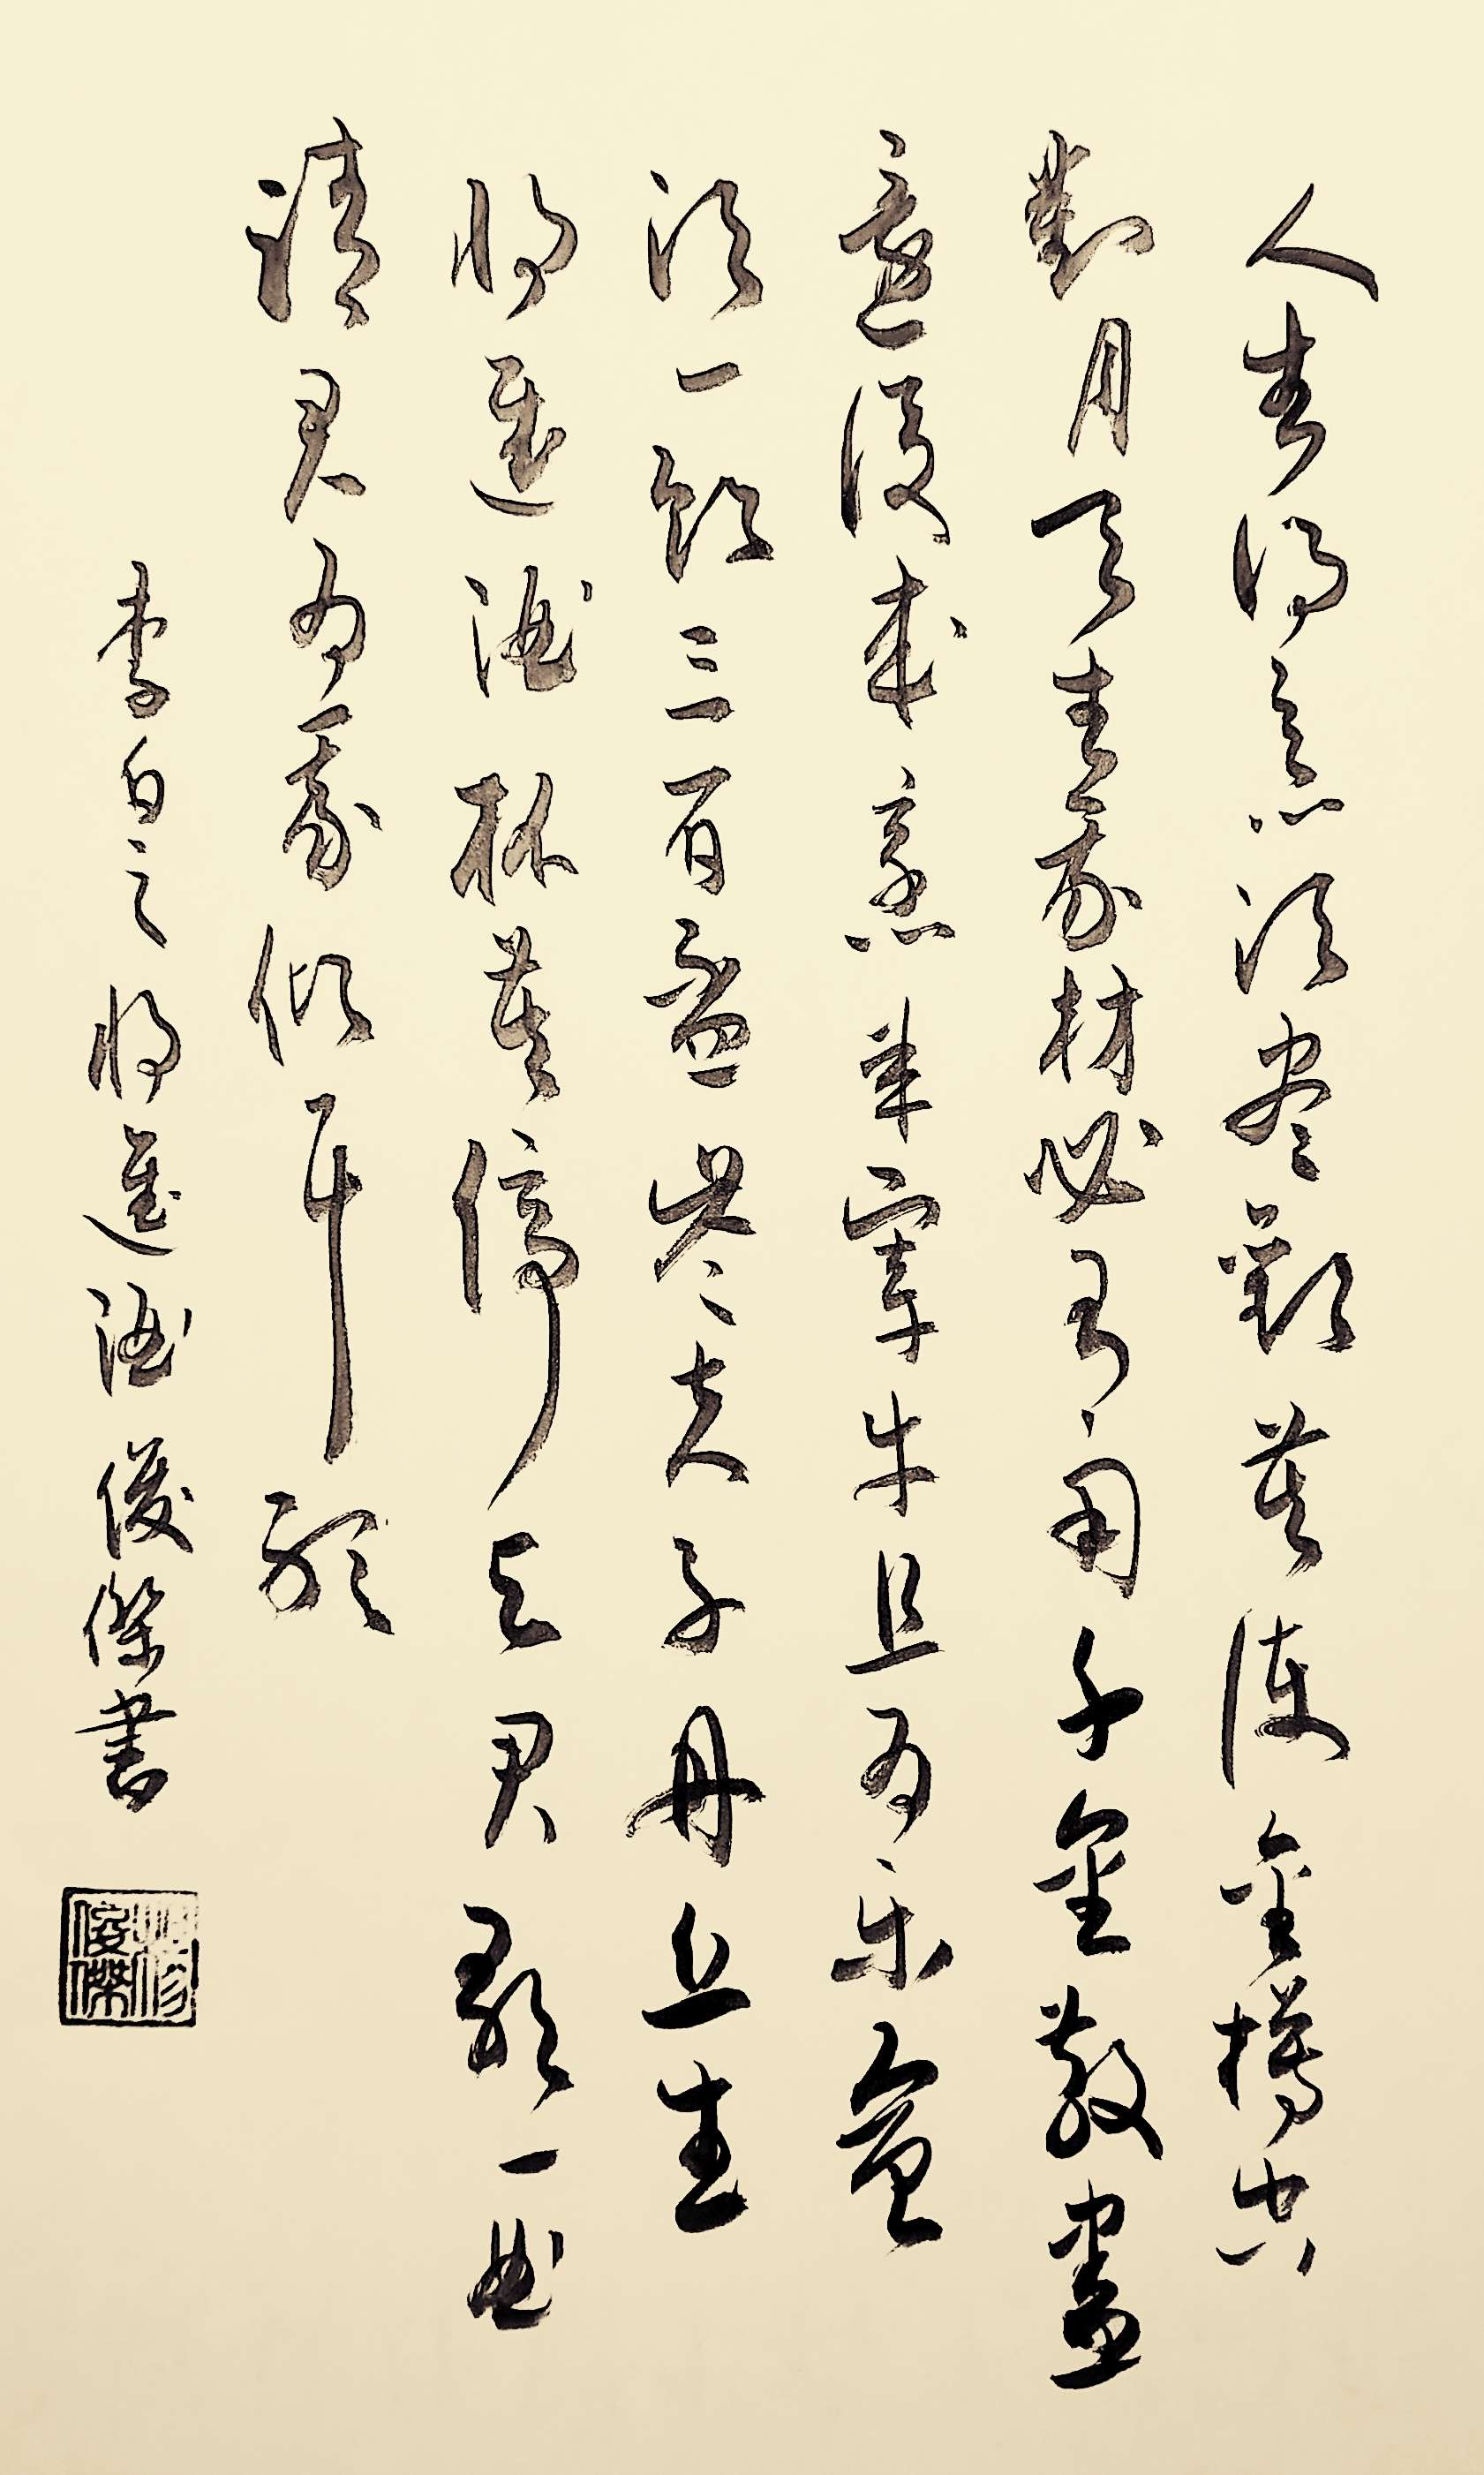 人生得意須盡歡莫使金樽空
對月天生我材必有用千金散盡
還復來烹羊宰牛且為樂會
須一飲三百盃岑夫子丹丘生
將進酒杯莫停與君歌一曲
請君為我傾耳聽
李白之將進酒俊傑書
俊傑